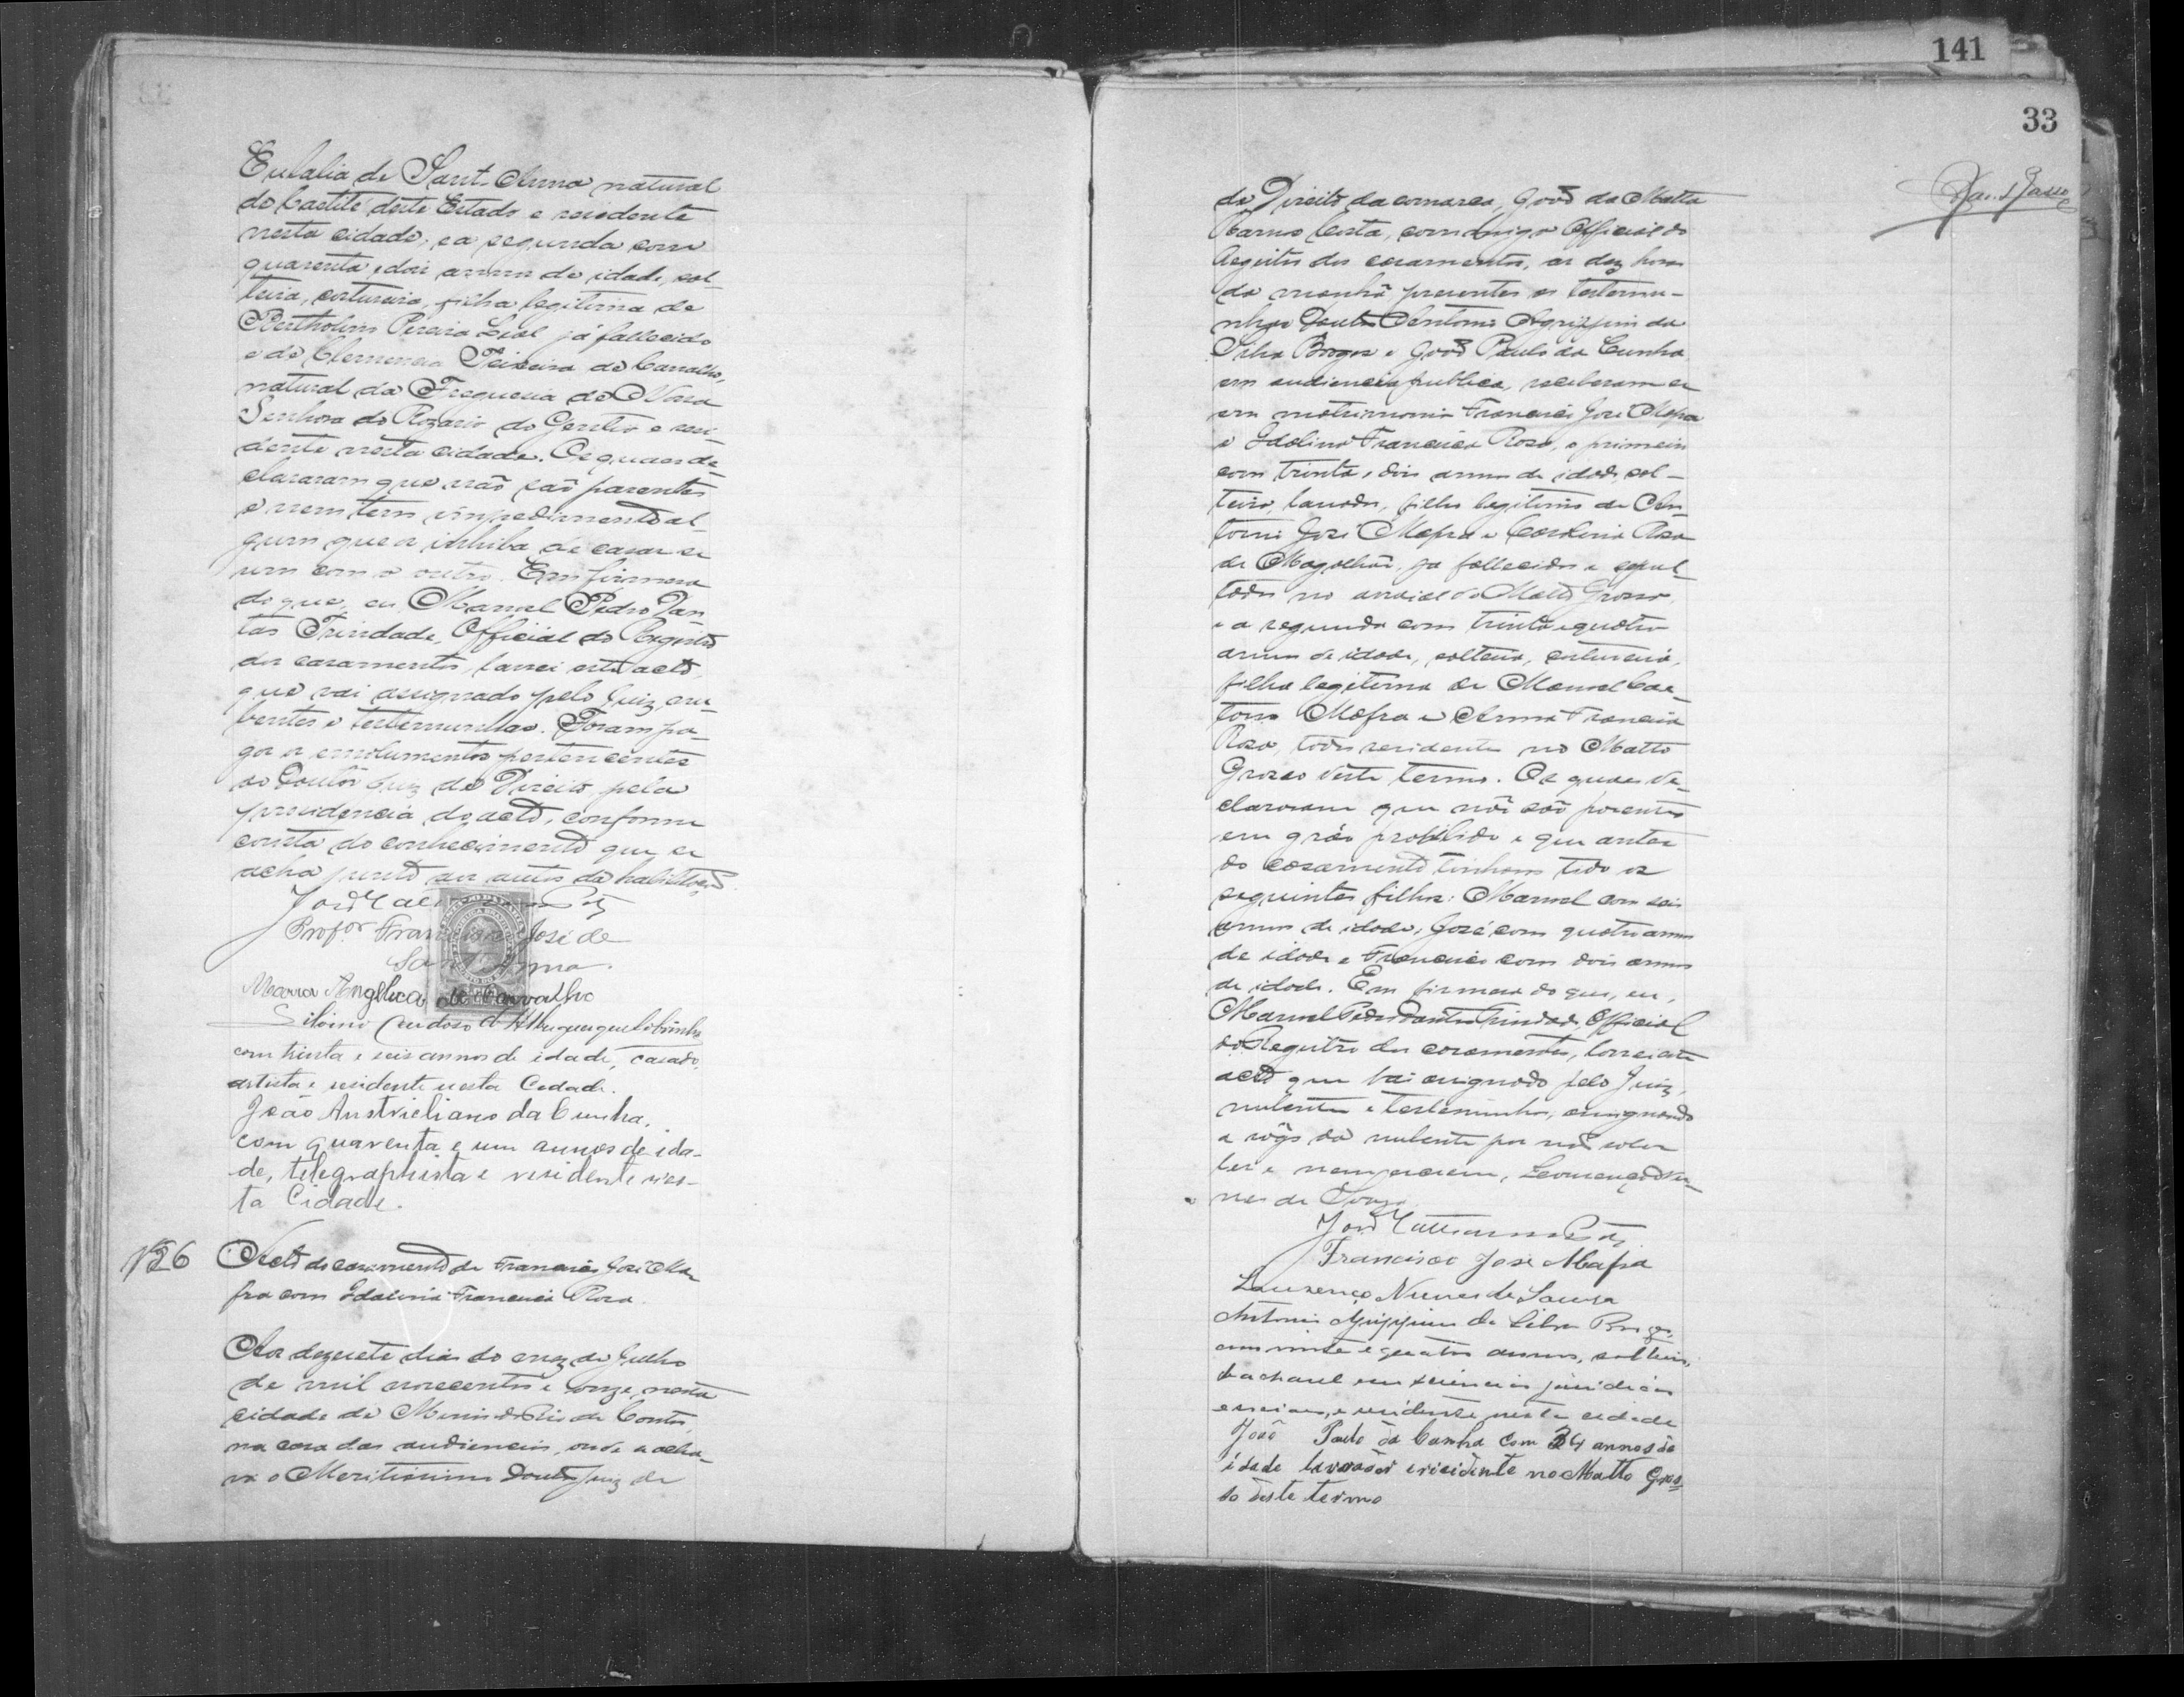 Eulalia de Sant. Anna natural
de Caetité deste Estado e residente
nesta cidade, e a segunda com
quarenta e dois annos de idade, sol-
teira, costureira, filha legitima de
Bertholino Pereira Leal já fallecido
e de Clemencia Teixeira de Carvalho,
natural da Freguesia de Nossa
Senhora do Rozario do Gentio e resi-
dente nesta cidade. Os quaes de-
clararam que não são parentes
e nem tem impedimento al-
gum que os inhiba de casar se
um com o outro. Em firmeza
do que, eu Manoel Pedro Dan-
tas Trindade, Official do Registro
dos casamentos, lavrei este acto
que vai assignado pelo Juiz, nu-
bentes e testemunhas. Foram pa-
gos os emolumentos pertencentes
ao Doutor Juiz de Direito pela
presidencia do acto, conforme
consta do conhecimento que se
acha junto aos autos da habilitação.
Profor Francisco José de
Sant'Anna.
Maria Angelica de Carvalho
Cardoso d'Albuquerque
com trinta e seis annos de idade, casado,
artista e residente nesta Cidade.
João Austricliano da Cunha,
com quarenta e um annos de ida-
de, telegraphista e residente nes-
ta Cidade.
Nº 26 Acto do casamento de Francisco José Ma-
fra com Idalina Francisca Rosa.
Aos dezesete dias do mez de Julho
de mil novecentos e onze, nesta
cidade de Minas do Rio de Contas,
na casa das audiencias, onde se acha-
va o Meritissimo Doutor Juiz de
141
33
de Direito da comarca, João da Matta
Barros Costa, commigo Official do
Registro dos casamentos, as dez horas
da manhã presentes as testemu-
nhas Doutor Antonio Agrippino da
Silva Borges e João Paulo da Cunha
em audiencia publica, receberam se
em matrimonio Francisco José Mafra
e Idalina Francisca Rosa, o primeiro
com trinta e dois annos de idade, sol-
teiro, lavrador, filho legitimo de An-
tonio José Mafra e Carolina Rosa
de Magalhães, ja fallecidos e sepul-
tados no arraial do Matto Grosso,
e a segunda com trinta e quatro
annos de idade, solteira, costureira,
filha legitima de Manoel Cae-
tano Mafra e Anna Francisca
Rosa, todos residentes no Matto
Grosso deste termo. Os quaes de-
clararam que não são parentes
em gráo prohibido e que antes
do casamento tinham tido os
seguintes filhos: Manoel com seis
annos de idade, José com quatro annos
de idade e Francisco com dois annos
de idade. Em firmeza do que, eu,
Manoel Pedro Dantas Trindade, Official
do Registro dos casamentos, lavrei este
acto que vai assignado pelo Juiz,
nubentes e testemunhas, assignando
a rôgo da nubente por não saber
ler e nem escrever, Lourenço Nu-
nes de Souza.
Francisco José Mafra
Lourenço Nunes de Souza
Antonio Agrippino da Silva Borges,
com vinte e quatro annos, solteiro,
bacharel em sciencias juridicas
e sociaes, e residente nesta cidade
João Paulo da Cunha com 34 annos de
idade lavrador e residente no Matto Gros-
so deste termo